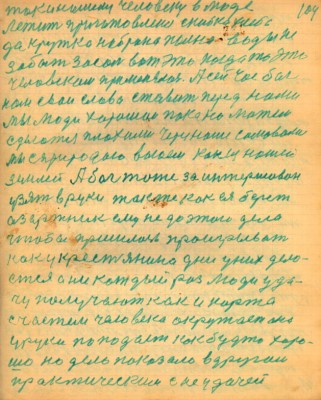 такиному человеку в моде 104
летит приготовлений
да крутко набрана полна воды не
забыт засол вот это когда то это
человеком А сей час бог
нам свои слова ставит перед нами
мы люди хорошие пока но можем
сделатся плохими через наше самоволи
мы с природаю воюем как и нашей
землей А бог тоже заинтересован
взят в руки так то как ея берет
азартник ему не до этого дела
чтобы пришлось проигрывать
как у крестьянина дни у них дею
тся они каждый раз люди уда
чу получают как и карта
счастем человека окружает она
у руки попадает как будто хоро
шо но дело показало в другом
практическим с неудачей